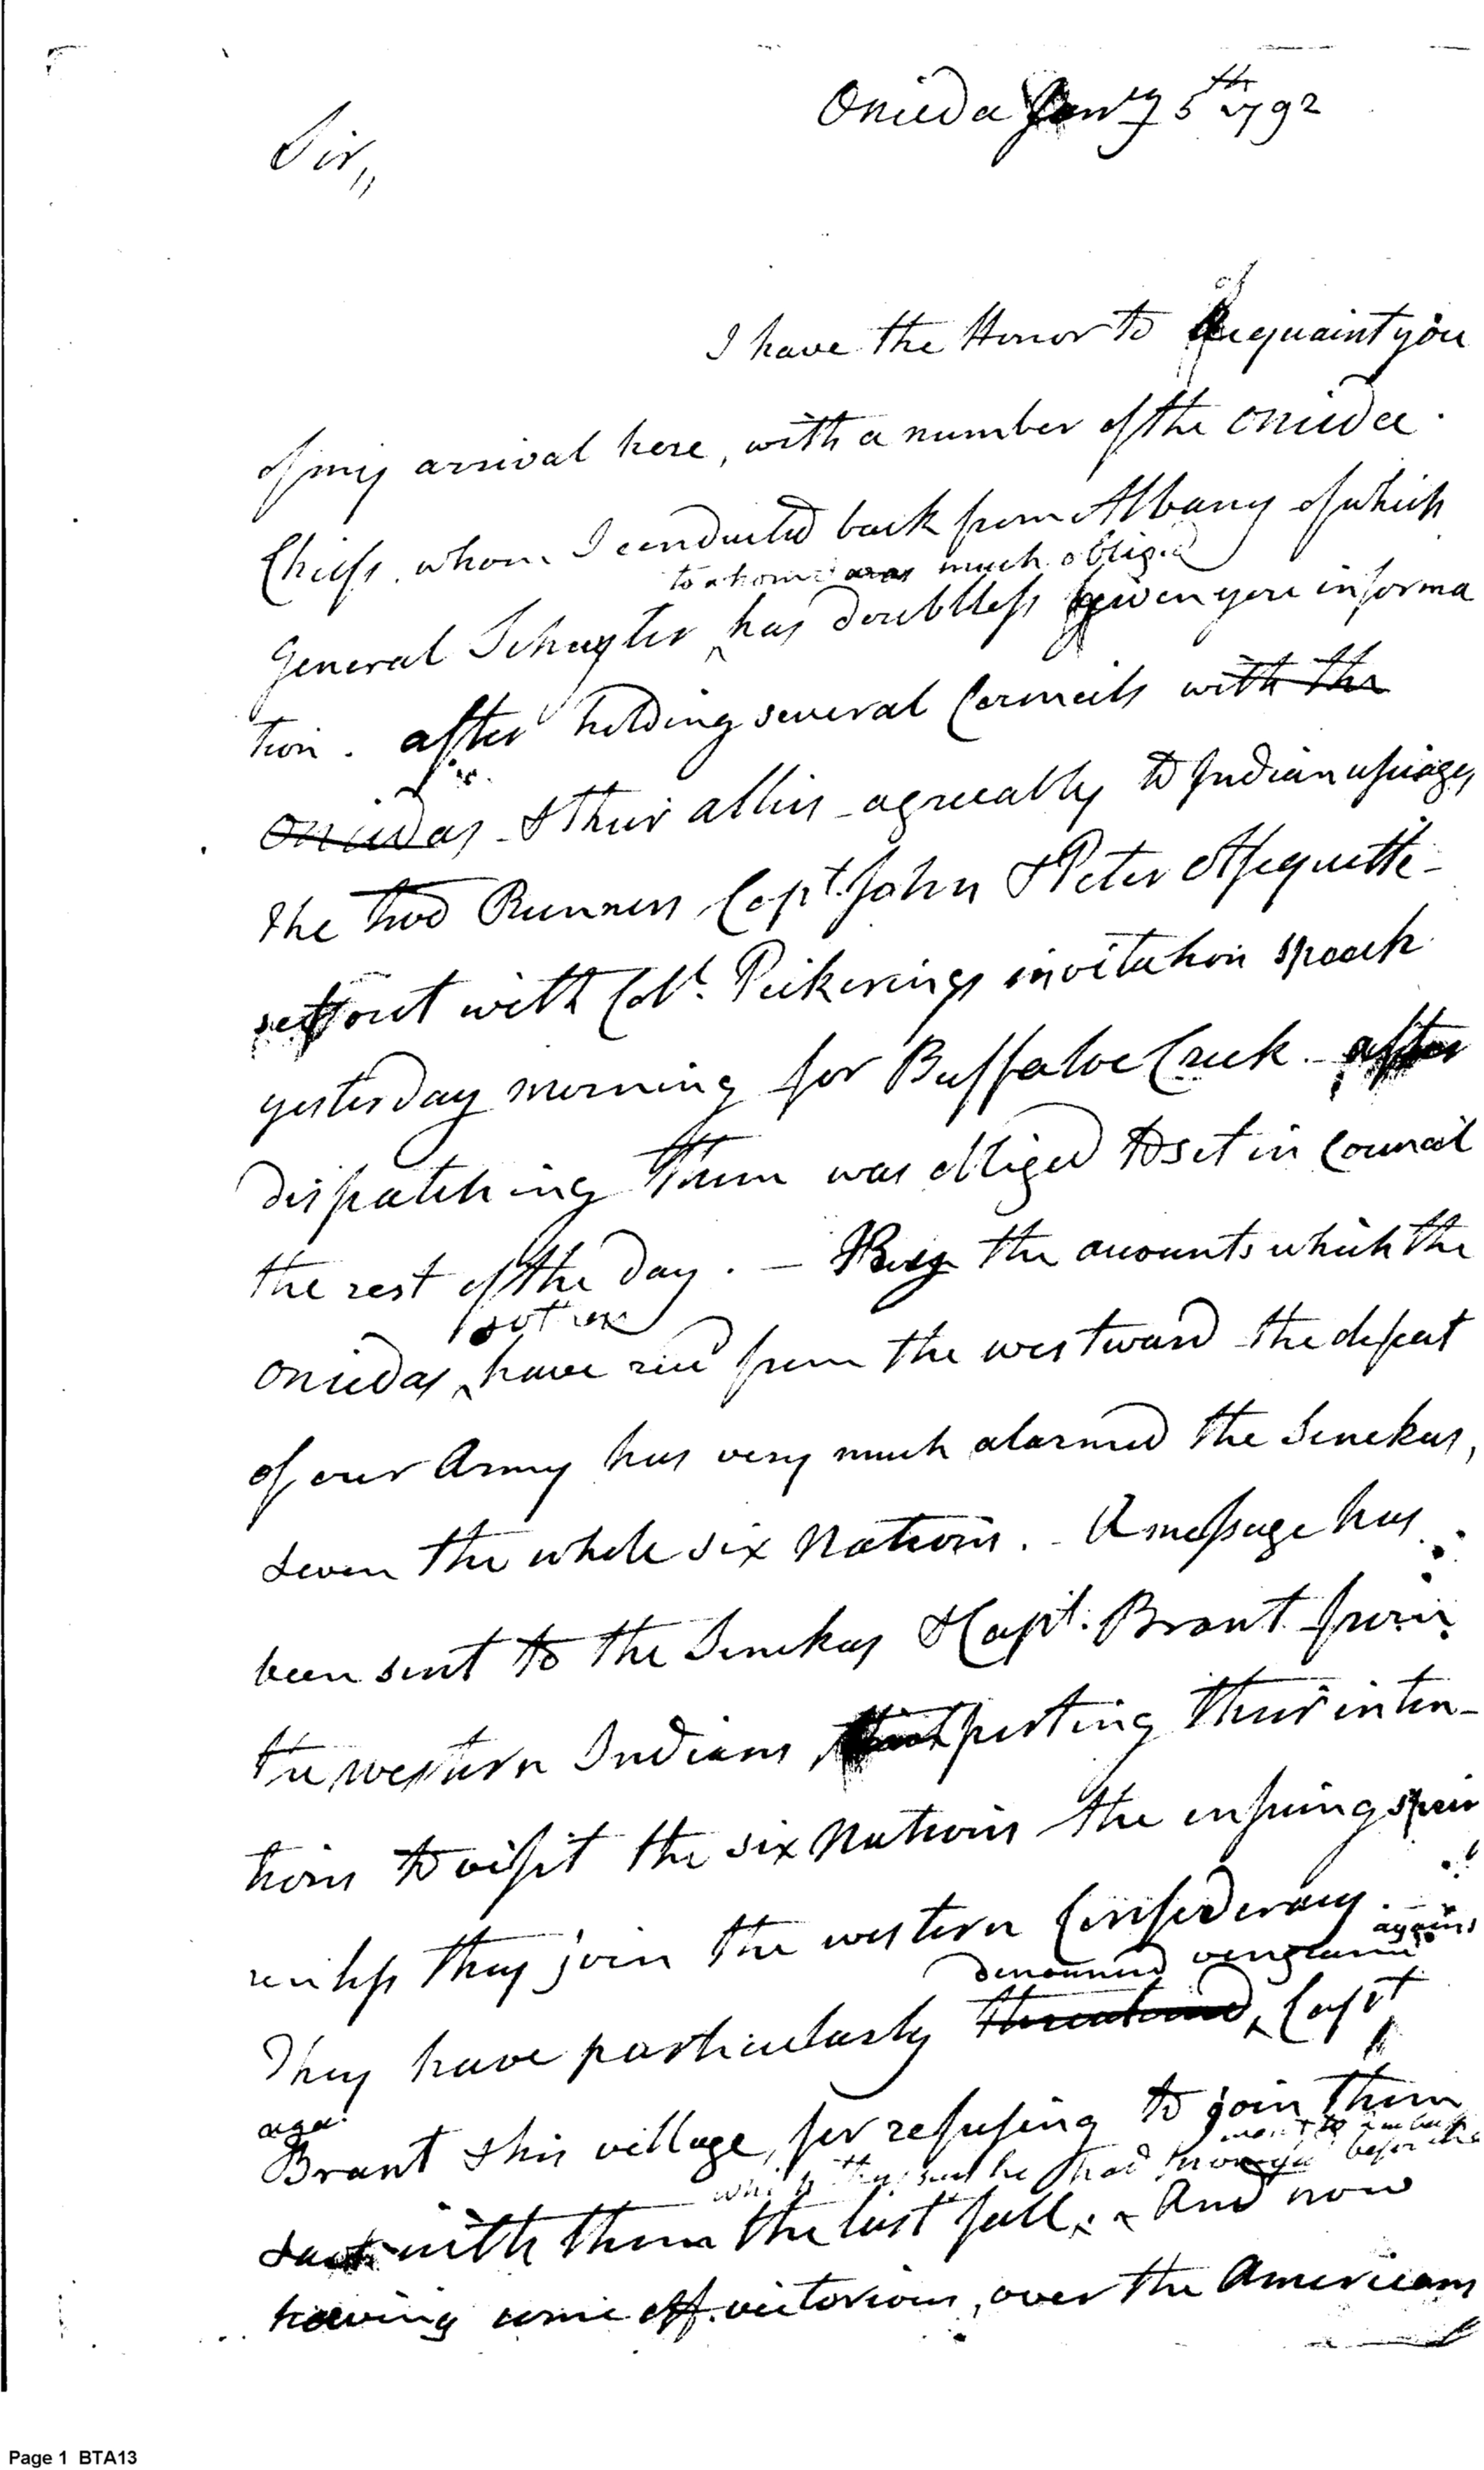 Onieda Jany 5th 1792
Sir,,
I have the Honor to Acquaint you
of my arrival here, with a number of the Onieda
Chiefs whom I conducted back from Albany of which
to whom I was much obliged
General Schuyler ^ has doubtless given you informa
tion. after holding several Councils with the
Oniedas & their allies agreeably to Indian usuages
the two Runners Capt. John & Peter Otsequette
set out with Coll. Pickerings invitation speech
yesterday morning for Buffaloe Creek. after
dispatching them was obliged to set in Council
the rest of the day. — By the accounts which the
Oniedas ^ have recd from the westward the defeat
of our Army has very much alarmed the Senekas,
& even the whole six Nations. A message has
been sent to the Senekas & Capt. Brant from
the western Indians purporting their inten-
tions to visit the six Nations the ensuing
unless they join the western Confederacy.
denounced vengeance against
They have particularly threatened ^ Capt
Brant & his village, for refusing to join them
which they said he had
before
with them the last fall. ^ And now
having come off victorious, over the Americans
Page 1 BTA13